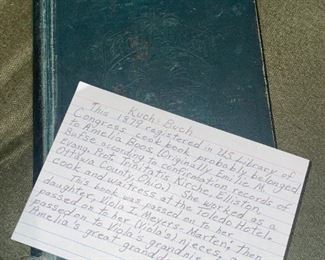 Kuch-Buch
This 1879 registered in US Library of
Congress cook book probably belonged
to Amelia Boos. (Originally Emilie M. L.
Butse according to confirmation records of
Evang. Prot Trinitatis Kirche, Elliston
Ottawa County, Ohio.) She worked as a
Cook and waitress at the Toledo Hotel.
This book was passed on to her
daughter, Viola I. Meyers-Merten, then
passed on to her (Viola's) nieces, and
passed on to Viola's grandnie
Amelia's great-grandd